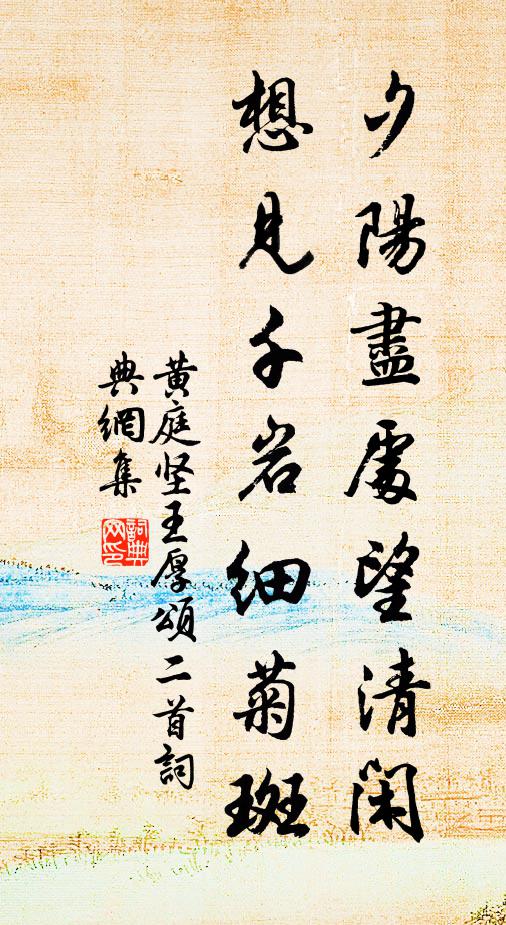 夕陽盡處望清閑
想見千岩細菊斑
黃庭坚王厚頌二首詞
典網集
詞典网印